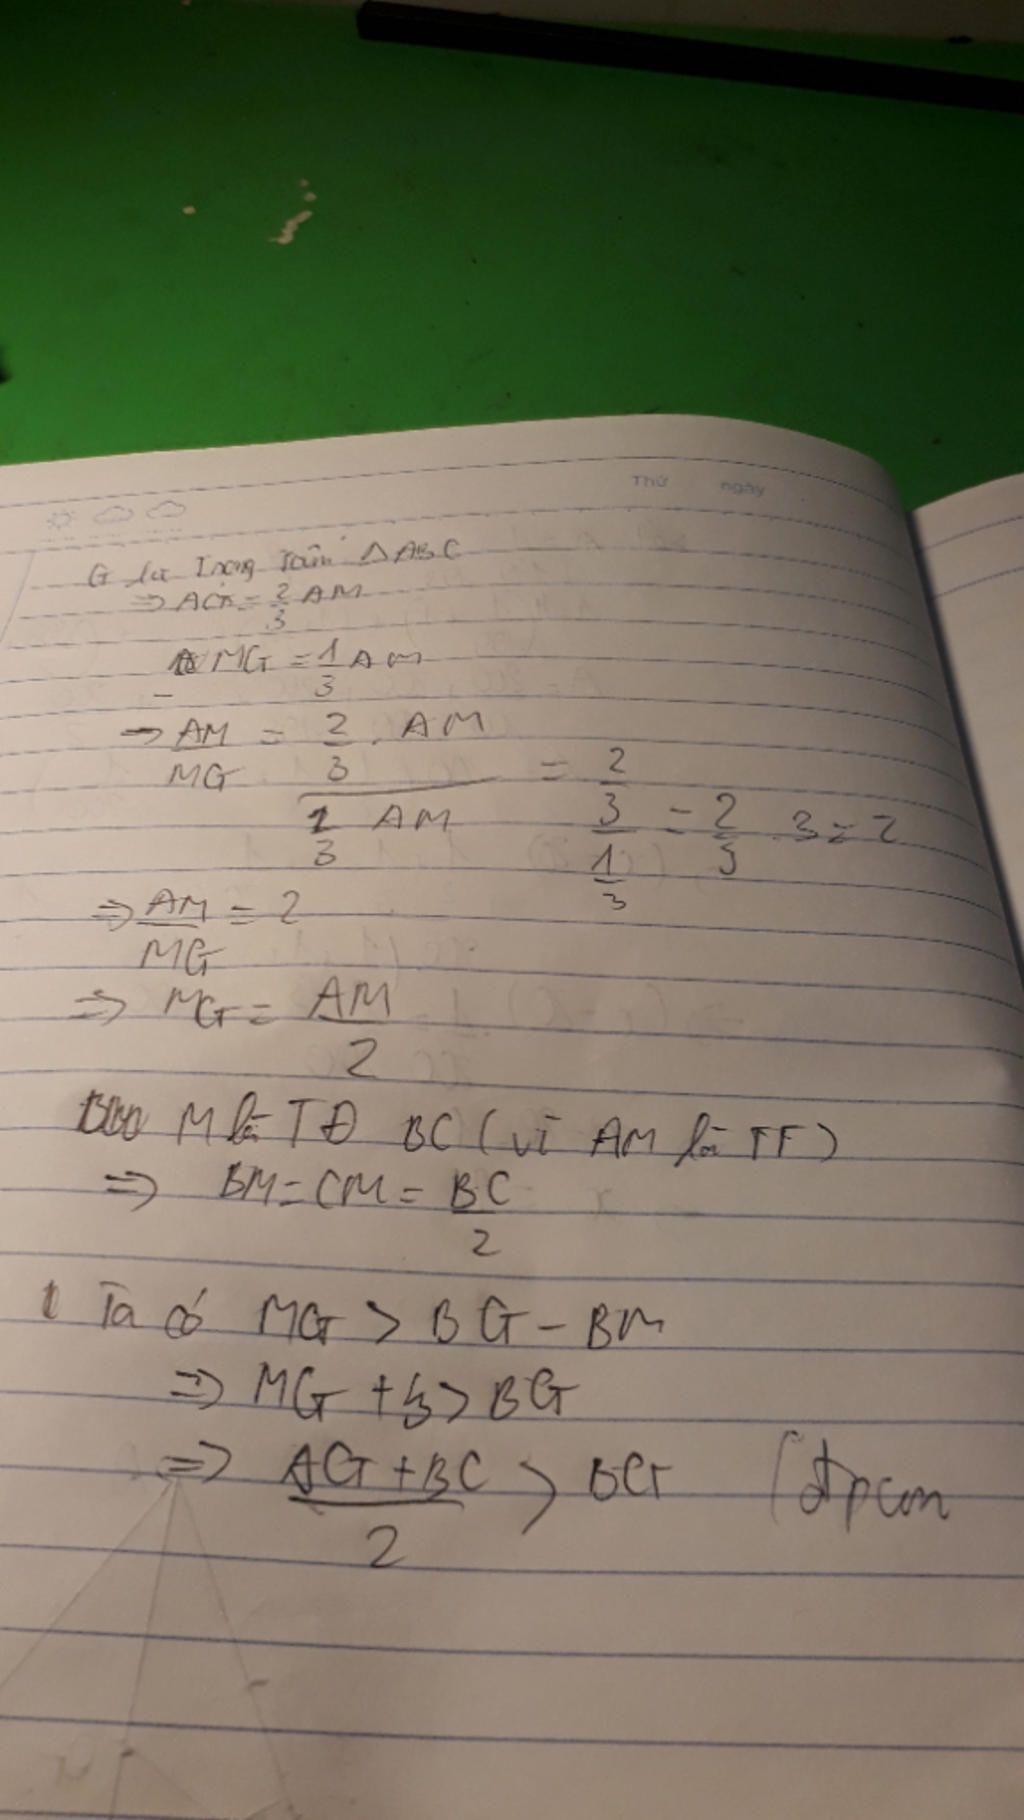 Thứ ngày
G là trọng tâm ΔABC
⇒ AG = 2/3 AM
MG = 1/3 AM
⇒ AM/MG = (2/3 . AM)/(1/3 AM) = (2/3)/(1/3) = 2/3 . 3 = 2
⇒ AM/MG = 2
⇒ MG = AM/2
M là TĐ BC (vì AM là TT)
⇒ BM = CM = BC/2
Ta có MG > BG - BM
⇒ MG + > BG
⇒ (AG + BC)/2 > BG (đpcm